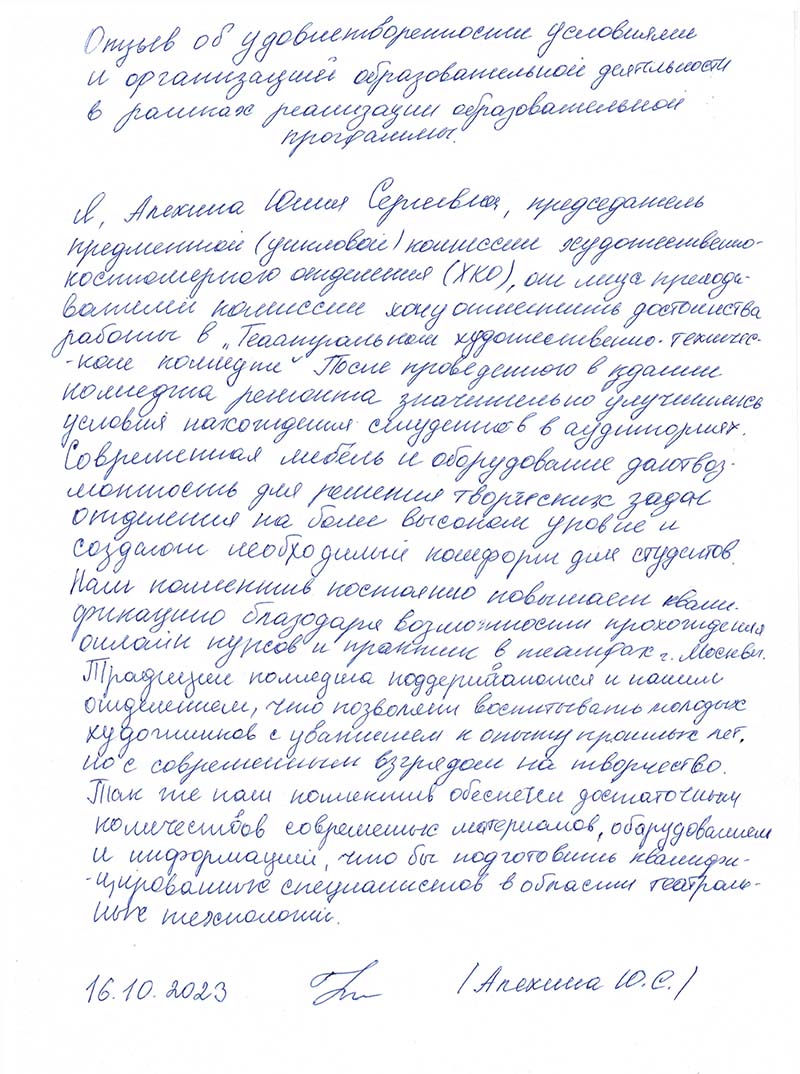 Отзыв об удовлетворенности условиями
и организацией образовательной деятельности
в рамках реализации образовательной
программы.
Я, Алехина Юлия Сергеевна, председатель
предметной (цикловой) комиссии художественно-
костюмерного отделения (ХКО), от лица препода-
вателей комиссии хочу отметить достоинства
работы в „Театральном художественно-техничес-
-ком колледже" После проведенного в здании
колледжа ремонта значительно улучшились
условия нахождения студентов в аудиториях.
Современная мебель и оборудование дают воз-
можность для решения творческих задач
отделения на более высоком уровне и
создают необходимый комфорт для студентов.
Наш коллектив постоянно повышает квали-
фикацию благодаря возможности прохождения
онлайн курсов и практик в театрах г. Москвы.
Традиции колледжа поддерживаются и нашим
отделением, что позволяет воспитывать молодых
художников с уважением к опыту прошлых лет,
но с современным взглядом на творчество.
Так же наш коллектив обеспечен достаточным
количеством современых материалов, оборудованием
и информацией, что бы подготовить квалифи-
-цированных специалистов в области театраль-
ных технологий.
16.10.2023 /Алехина Ю.С./